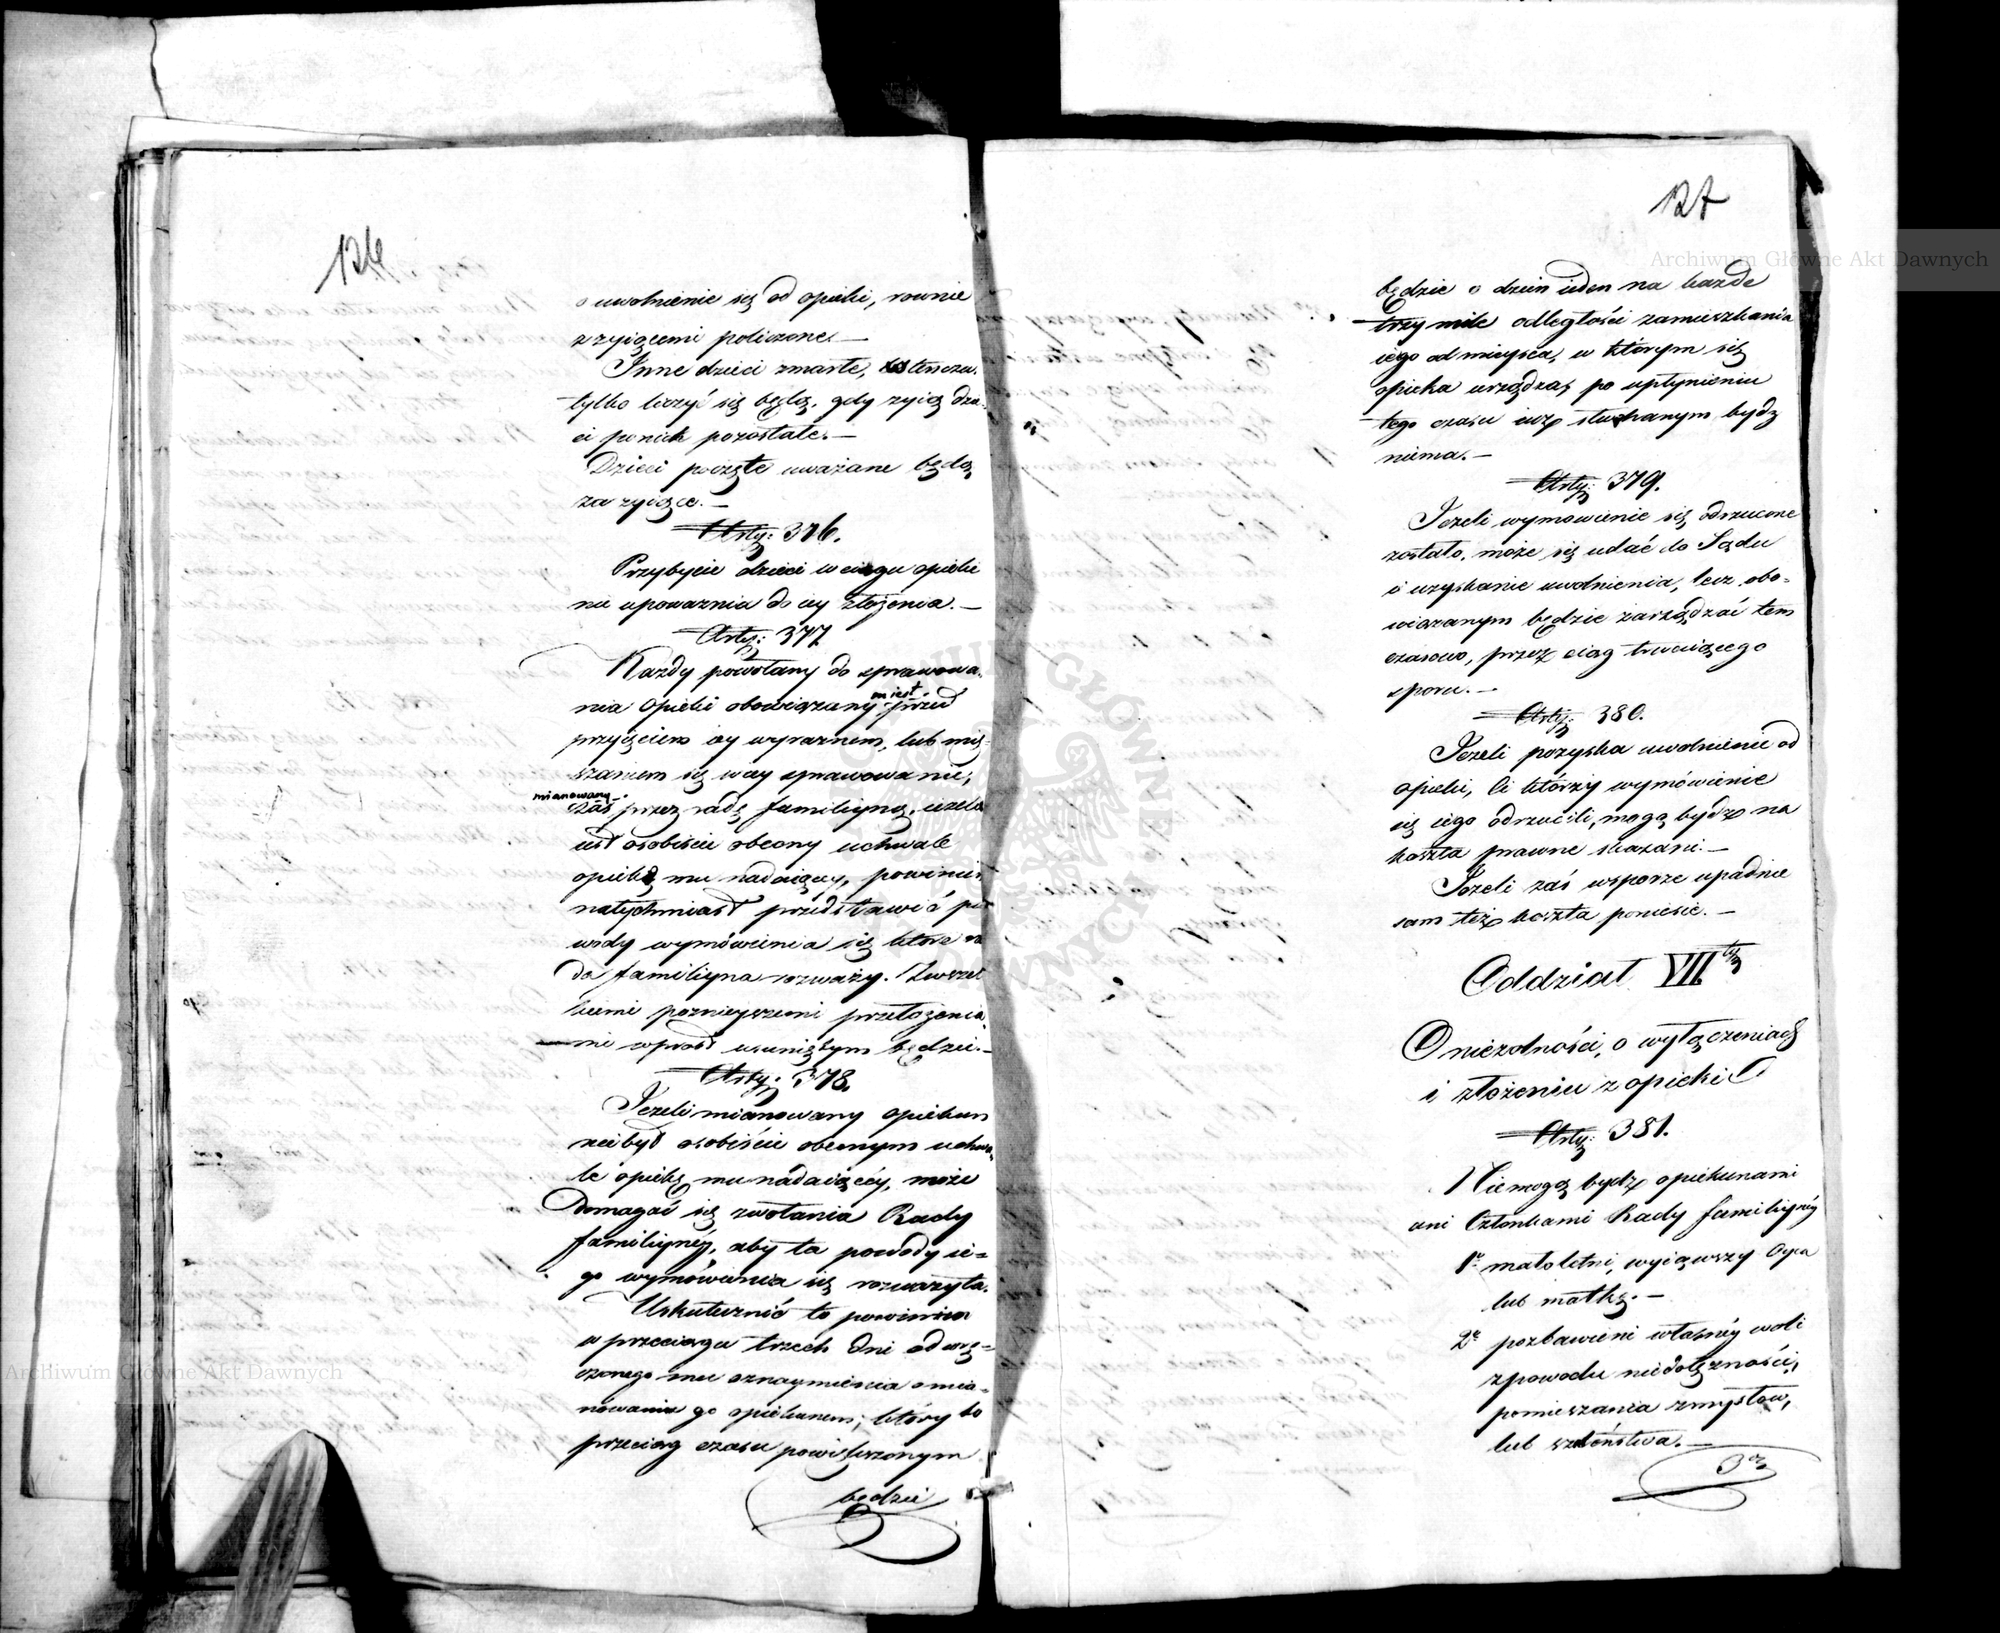 126
o uwolnienie się od opieki, rownie
z zyiącemi policzone. —
Inne dzieci zmarłe, wtenczas
tylko liczyć się będą, gdy zyią dzie-
ci po nich pozostałe. —
Dzieci poczęte uważane będą
za zyiące. —
Arty: 376.
Przybycie dzieci w ciągu opieki
nie upoważnia do iey złożenia. —
Arty: 377
Każdy powołany do sprawowa-
nia opieki obowiązany iest przed
przyięciem iey wyraźnem, lub mię-
szaniem się w iey sprawowanie,
mianowany
zaś przez radę familiyną, ieżeli
iest osobiście obecny uchwale
opiekę mu nadaiącey, powinien
natychmiast przedstawić po-
wody wymówienia się które ra
da familiyna rozważy. Z wszel
kiemi pozniejszemi przełożenia-
mi wprost usuniętym będzie. —
Arty: 378.
Jeżeli mianowany opiekun
nie był osobiście obecnym uchwa-
le opiekę mu nadaiącéy, może
domagać się zwołania Rady
familiynéy, aby ta powody ie-
go wymówienia się rozważyła.
Uskutecznić to powinien
w przeciągu trzech dni od urzę-
czonego mu oznaymienia o mia-
nowaniu go opiekunem, który to
przeciąg czasu powiększonym
będzie
127
będzie o dzień ieden na każde
trzy mile odległości zamieszkania
iego od mieysca, w którym się
opieka urządza, po upłynieniu
tego czasu iuż słuchanym bydz
niema. —
Arty: 379.
Jeżeli wymowienie się odrzucone
zostało, może się udać do Sądu
o uzyskanie uwolnienia, lecz obo-
wiązanym będzie zarządzać tem
czasowo, przez ciąg trwaiącego
sporu. —
Arty: 380.
Jeżeli pozyska uwolnienie od
opieki, ci którzy wymówienie
się iego odrzucili, mogą bydź na
koszta prawne skazani. —
Jeżeli zaś w sporze upadnie
sam też koszta poniesie. —
Oddział VII.ty
O niezdolności, o wyłączeniach
i złożeniu z opieki
Arty: 381.
Niemogą bydź opiekunami
ani Członkami Rady familiynéy
1e małoletni, wyiąwszy Oyca
lub matkę. —
2e pozbawieni własnéy woli
z powodu niedołężności,
pomieszania zmysłów,
lub szaleństwa. —
3e
Archiwum Główne Akt Dawnych
Archiwum Główne Akt Dawnych